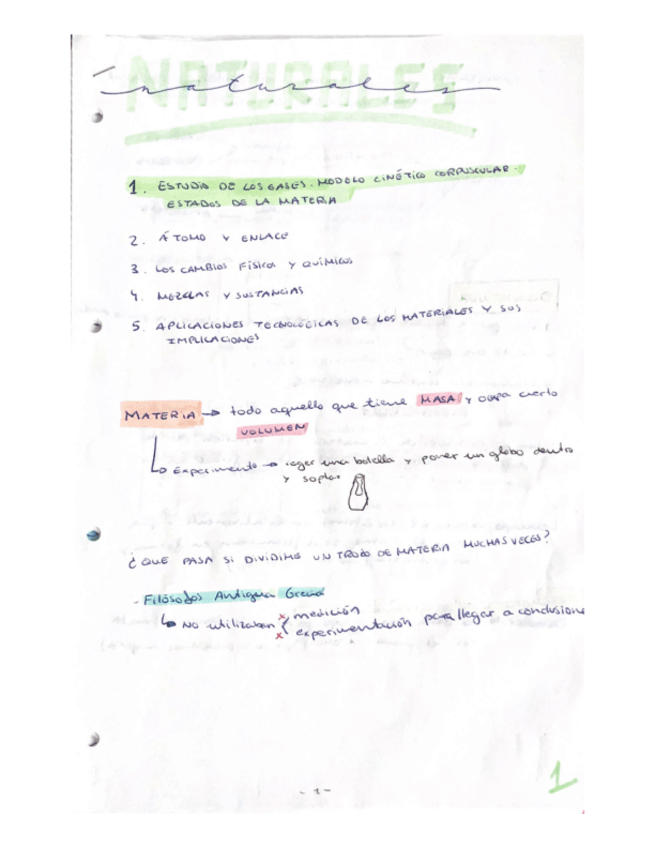 NATURALES
naturales
1. ESTUDIO DE LOS GASES. MODELO CINÉTICO CORPUSCULAR.
ESTADOS DE LA MATERIA
2. ÁTOMO Y ENLACE
3. LOS CAMBIOS FÍSICOS Y QUÍMICOS
4. MEZCLAS Y SUSTANCIAS
5. APLICACIONES TECNOLÓGICAS DE LOS MATERIALES Y SUS
IMPLICACIONES
MATERIA → todo aquello que tiene MASA y ocupa cierto
VOLUMEN
↳ Experimento → coger una botella y poner un globo dentro
y soplar
¿QUE PASA SI DIVIDIMS UN TROZO DE MATERIA MUCHAS VECES?
- Filósofos Antigua Grecia
↳ NO utilizaban { x medición
x experimentación para llegar a conclusione
- 1 -
1